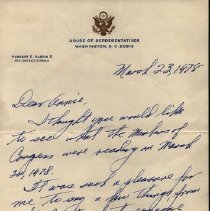 HOUSE OF REPRESENTATIVES
WASHINGTON, D.C. 20515
March 23, 1978
Dear Annie,
I thought you would like
to see what the Members of
Congress were reading on March
20, 1978.
It was such a pleasure for
me to say a few things from